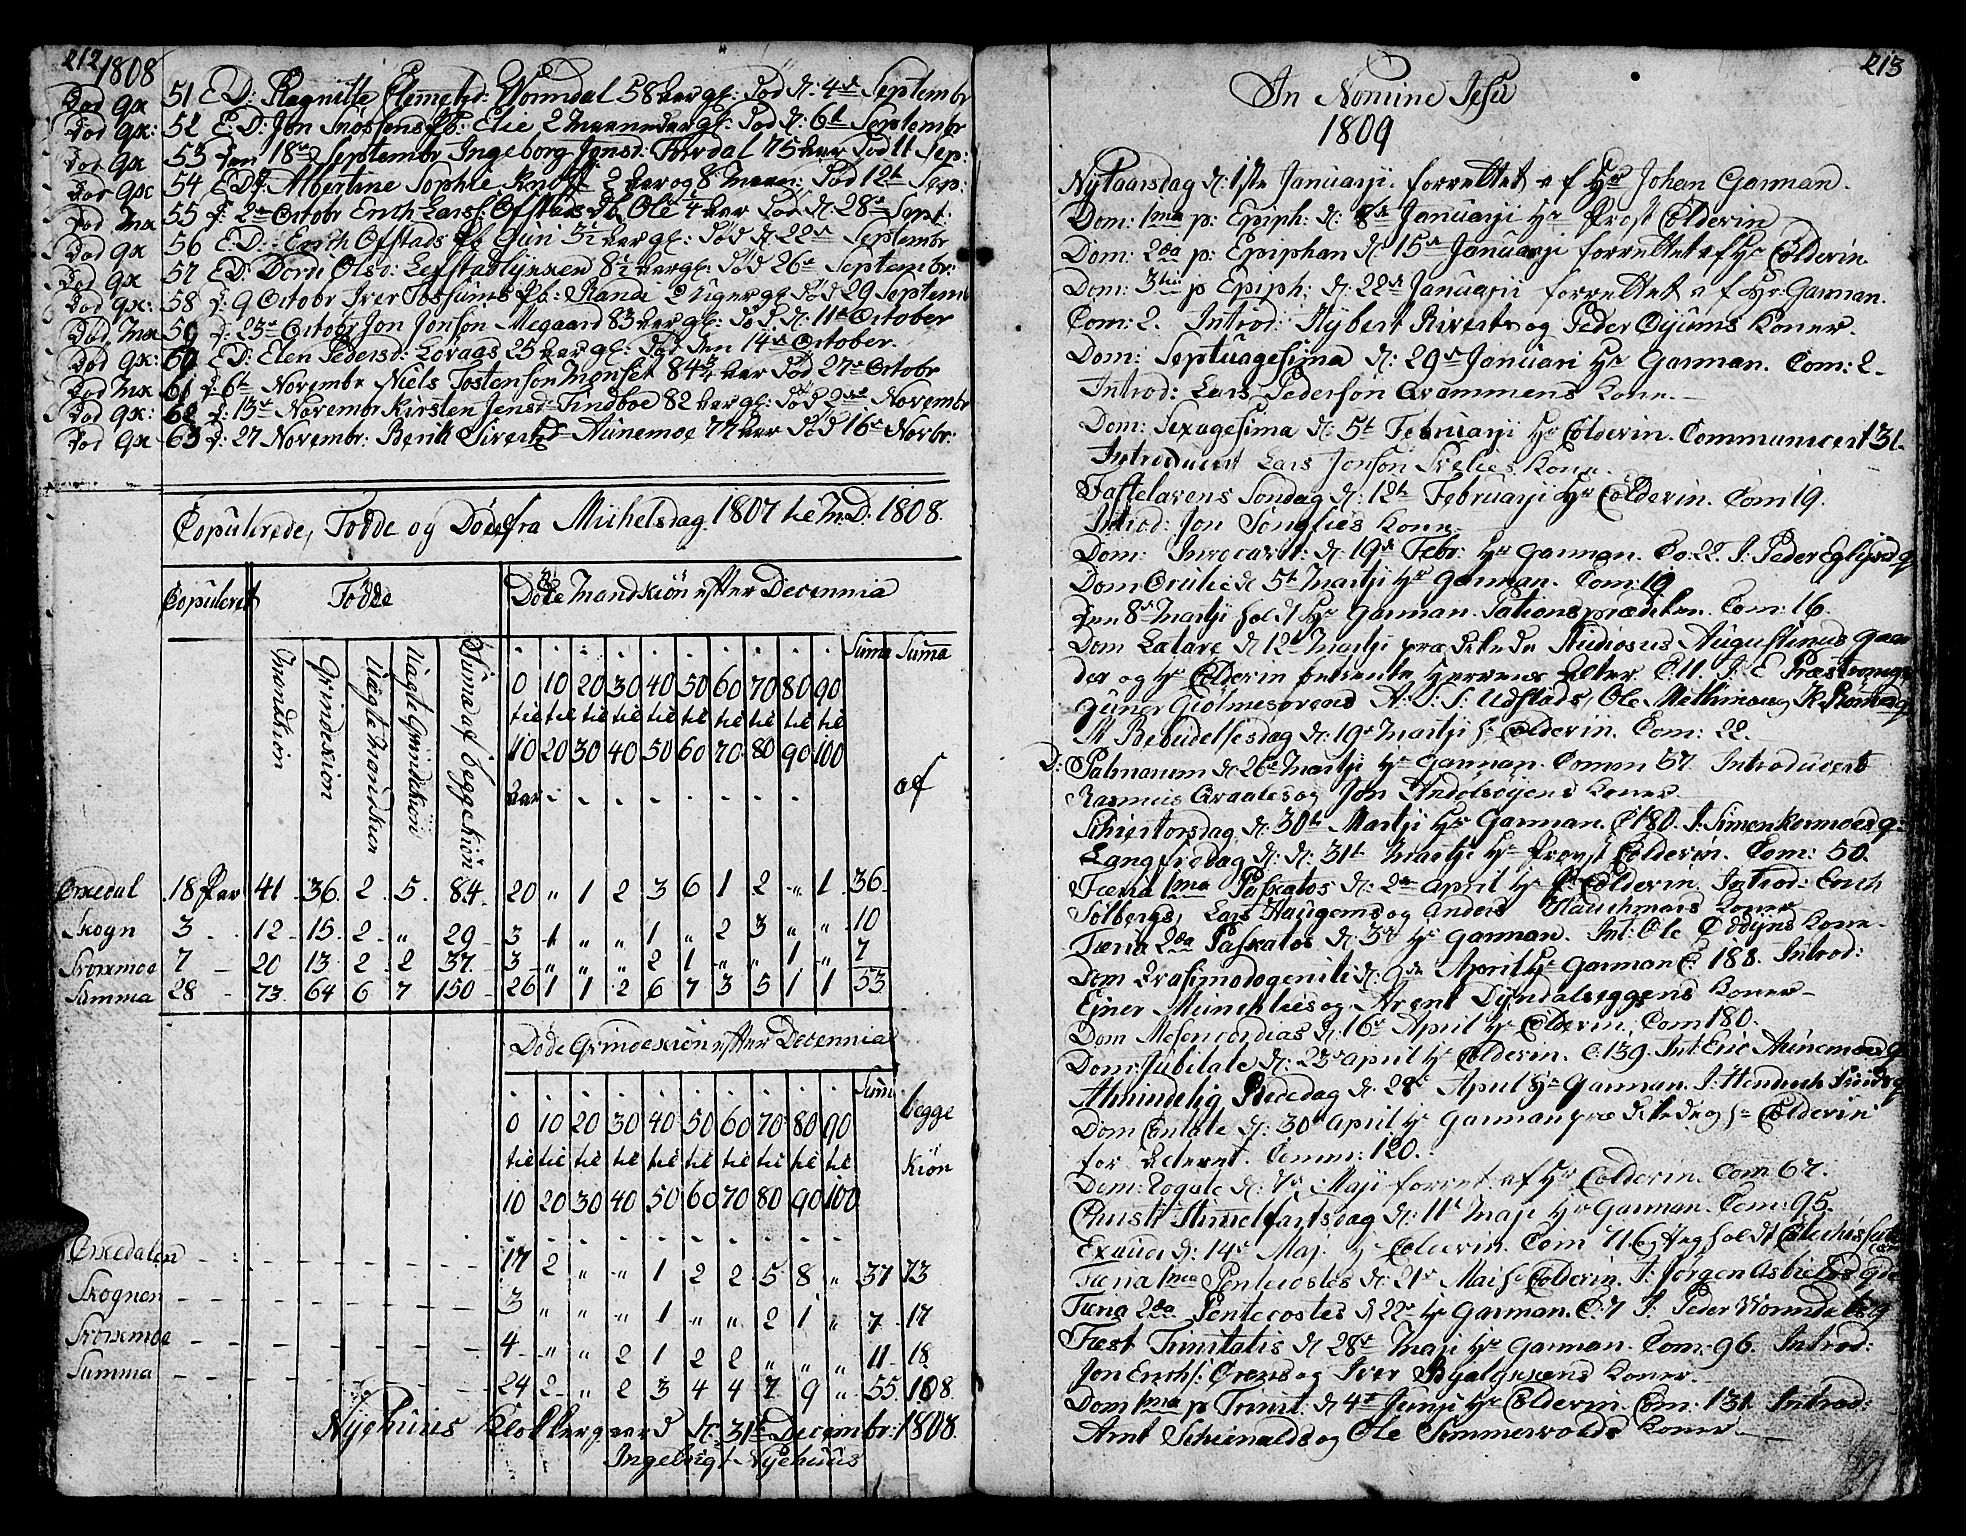 212 1808
Død qx 51 E D: Ragnille Clemetsd: Womdal 58 Aar gl: Død d: 4de Septembr
Død qx: 52 E: D: Jon Pb: Elie 2 Maaneder gl: Død d: 6te Septembr
Død qx 53 den 18de Septembr Ingeborg Jonsd: Fordal 75 Aar Død 11 Sep:
Død qx 54 E D: Albertine Sophie Knoff 2 Aar og 8 Maan: Død 12te Sep:
Død Mx 55 d: 2den Octobr Erich Lars: Ofstads Db: Ole 4 Aar Død d: 28de Sept:
Død qx 56 E D: Erich Ofstads Pb Guri 3½ Aar gl: Død d: 22de Septembr
Død qx 57 E D: Dordi Olsd: Lefstadlykken 8½ Aar gl: Død 26de Septembr:
Død qx: 58 d: 9 Octobr Iver Fossums Pb: Rande 2 Uger gl Død 29 Septem
Død Mx 59 d: 23de Octobr Jon Jonson Megaard 83 Aar gl: Død d: 11te October
Død qx: 60 E D: Elen Pedersd: Loraas 25 Aar gl: Død den 14de October
Død Mx 61 d 6te Novembr Niels Tostenson Monset 84¾ Aar Død 27de Octobr
Død qx: 62 d: 13de Novembr Kirsten Jensd: Tindboe 82 Aar gl: Død 2den Novembr
Død qx 63 d: 27 Novembr: Berit Sivertsd Aunemoe 77 Aar Død 16de Novbr:
Copulerede, Fødde og Døde fra Michelsdag 1807 til M.D. 1808.
Copuleret Fødde Døde Mandkiøn efter Decennia
Mandkiøn Qvindekiøn Uægte Mandkiøn Uægte Qvindekiøn Suma af begge Kiøn Suma Suma
0 10 20 30 40 50 60 70 80 90
til til til til til til til til til til
10 20 30 40 50 60 70 80 90 100
Aar af
Orkedal 18 Par 41 36 2 5 84 20 " 1 2 3 6 1 2 " 1 36
Skogn 3 12 15 2 " 29 3 1 " " 1 " 2 3 " " 10
Svorkmoe 7 20 13 2 2 37 3 " " " 2 1 " " 1 " 7
Summa 28 73 64 6 7 150 26 1 1 2 6 7 3 5 1 1 53
Døde Qvindekiøn efter Decennia
Sum
0 10 20 30 40 50 60 70 80 90 begge
til til til til til til til til til til Kiøn
10 20 30 40 50 60 70 80 90 100
Orkedalen 17 2 " " 1 2 2 5 8 " 37 73
Skognen 3 " " " 1 " " 2 1 " 7 17
Svorkmoe 4 " " 2 1 2 2 " " " 11 18
Summa 24 2 " 2 3 4 4 7 9 " 55 108
Nyehuus Klokkergaard d: 31te Decembr: 1808.
Ingebrigt Nyehuus
213
In Nomine Jesu
1809
Nytaarsdag d: 1ste Januarji forrettet af Hr Johan Garman.
Dom: 1ma p: Epiph: d: 8de Januarji Hr Prost Colderin
Dom: 2da p: Epiphan d: 15de Januarji forrettet af Hr Colderin
Dom: 3tia p Epiph: d: 22de Januarji forrettet af Hr Garman.
Com: 2. Introd: Hybert Riverts og Peder Oyums Koner.
Dom: Septuagesima d: 29de Januari Hr Garman. Com: 2.
Introd: Lars Pederson Qrammens Kone.
Dom: Sexagesima d: 5te Februarji Hr Colderin. Communicert 31.
Introducert Lars Jonson Kone.
Fastelavens Søndag d: 12te Februarji Hr Colderin. Com 19.
Introd: Jon Songlies Kone.
Dom: Invocavit: d: 19de Febr: Hr Garman. Co: 22. I: Peder
Dom Oculie d 5te Martji Hr Garman. Com: 19
Den 8de Martji holdt Hr Garman Pationsprædiken. Com: 16.
Dom Lætare d 12te Martji prædikede Studiosus Augustinus
der og Hr Colderin betiente Herrens Alter. C: 11. I: E
Guner Giolmesørend A: S: Udstads, Ole
M Bebudelsesdag d: 19de Martji Hr Colderin. Com: 22.
D: Palmarum d: 26de Martji Hr Garman. Comm 57 Introducert
Rasmus Qraales og Jon Andolsøyens Koner
Schiertorsdag d: 30te Martji Hr Garman. C 180. I: Simen
Langfredag d: d: 31te Martji Hr Provst Colderin. Com: 50.
Færia 1ma Paskatos d: 2den April Hr P: Colderin. Introd: Erich
Solbergs, Lars Haugems og Anders Koner
Færia 2da Paskatos d: 3die Hr Garman. Int: Ole Kone
Dom Qvasimodogeniti d: 9de April Hr Garman C: 188. Introd:
Ejner Munchlies og Arent Dyndalseggens Koner
Dom Mesericordias d: 16de April Hr Colderin, Com 180.
Dom: Jubilate d: 23de April Hr Colderin. C: 139. Int: Eric
Almindelig Bededag d: 28de April Hr Garman. I: Hendrich
Dom Contate d: 30te April Hr Garman prædikede og Hr Colderin
for Alteret. Comm: 120.
Dom: Rogate d: 7de Maji forret af Hr Colderin. Com 67.
Christi Himmelfartsdag d: 11te Maji Hr Garman. Com: 95.
Exaudi d: 14de Maj. Hr Colderin. Com 11.
Færia 1ma Pentecostes d: 21de Mai Hr Colderin. I: Jørgen
Færia 2da Pentecostes d 22de Hr Garman. C: 7 I: Peder
Fæst Trinitatis d 28de Maji Hr Garman. Com: 96. Introd:
Jon Erichs: og Iver Koner.
Dom 1ma p Trinit: d 4de Junji Hr Colderin. Com: 131. Introd:
Arnt og Ole Koner